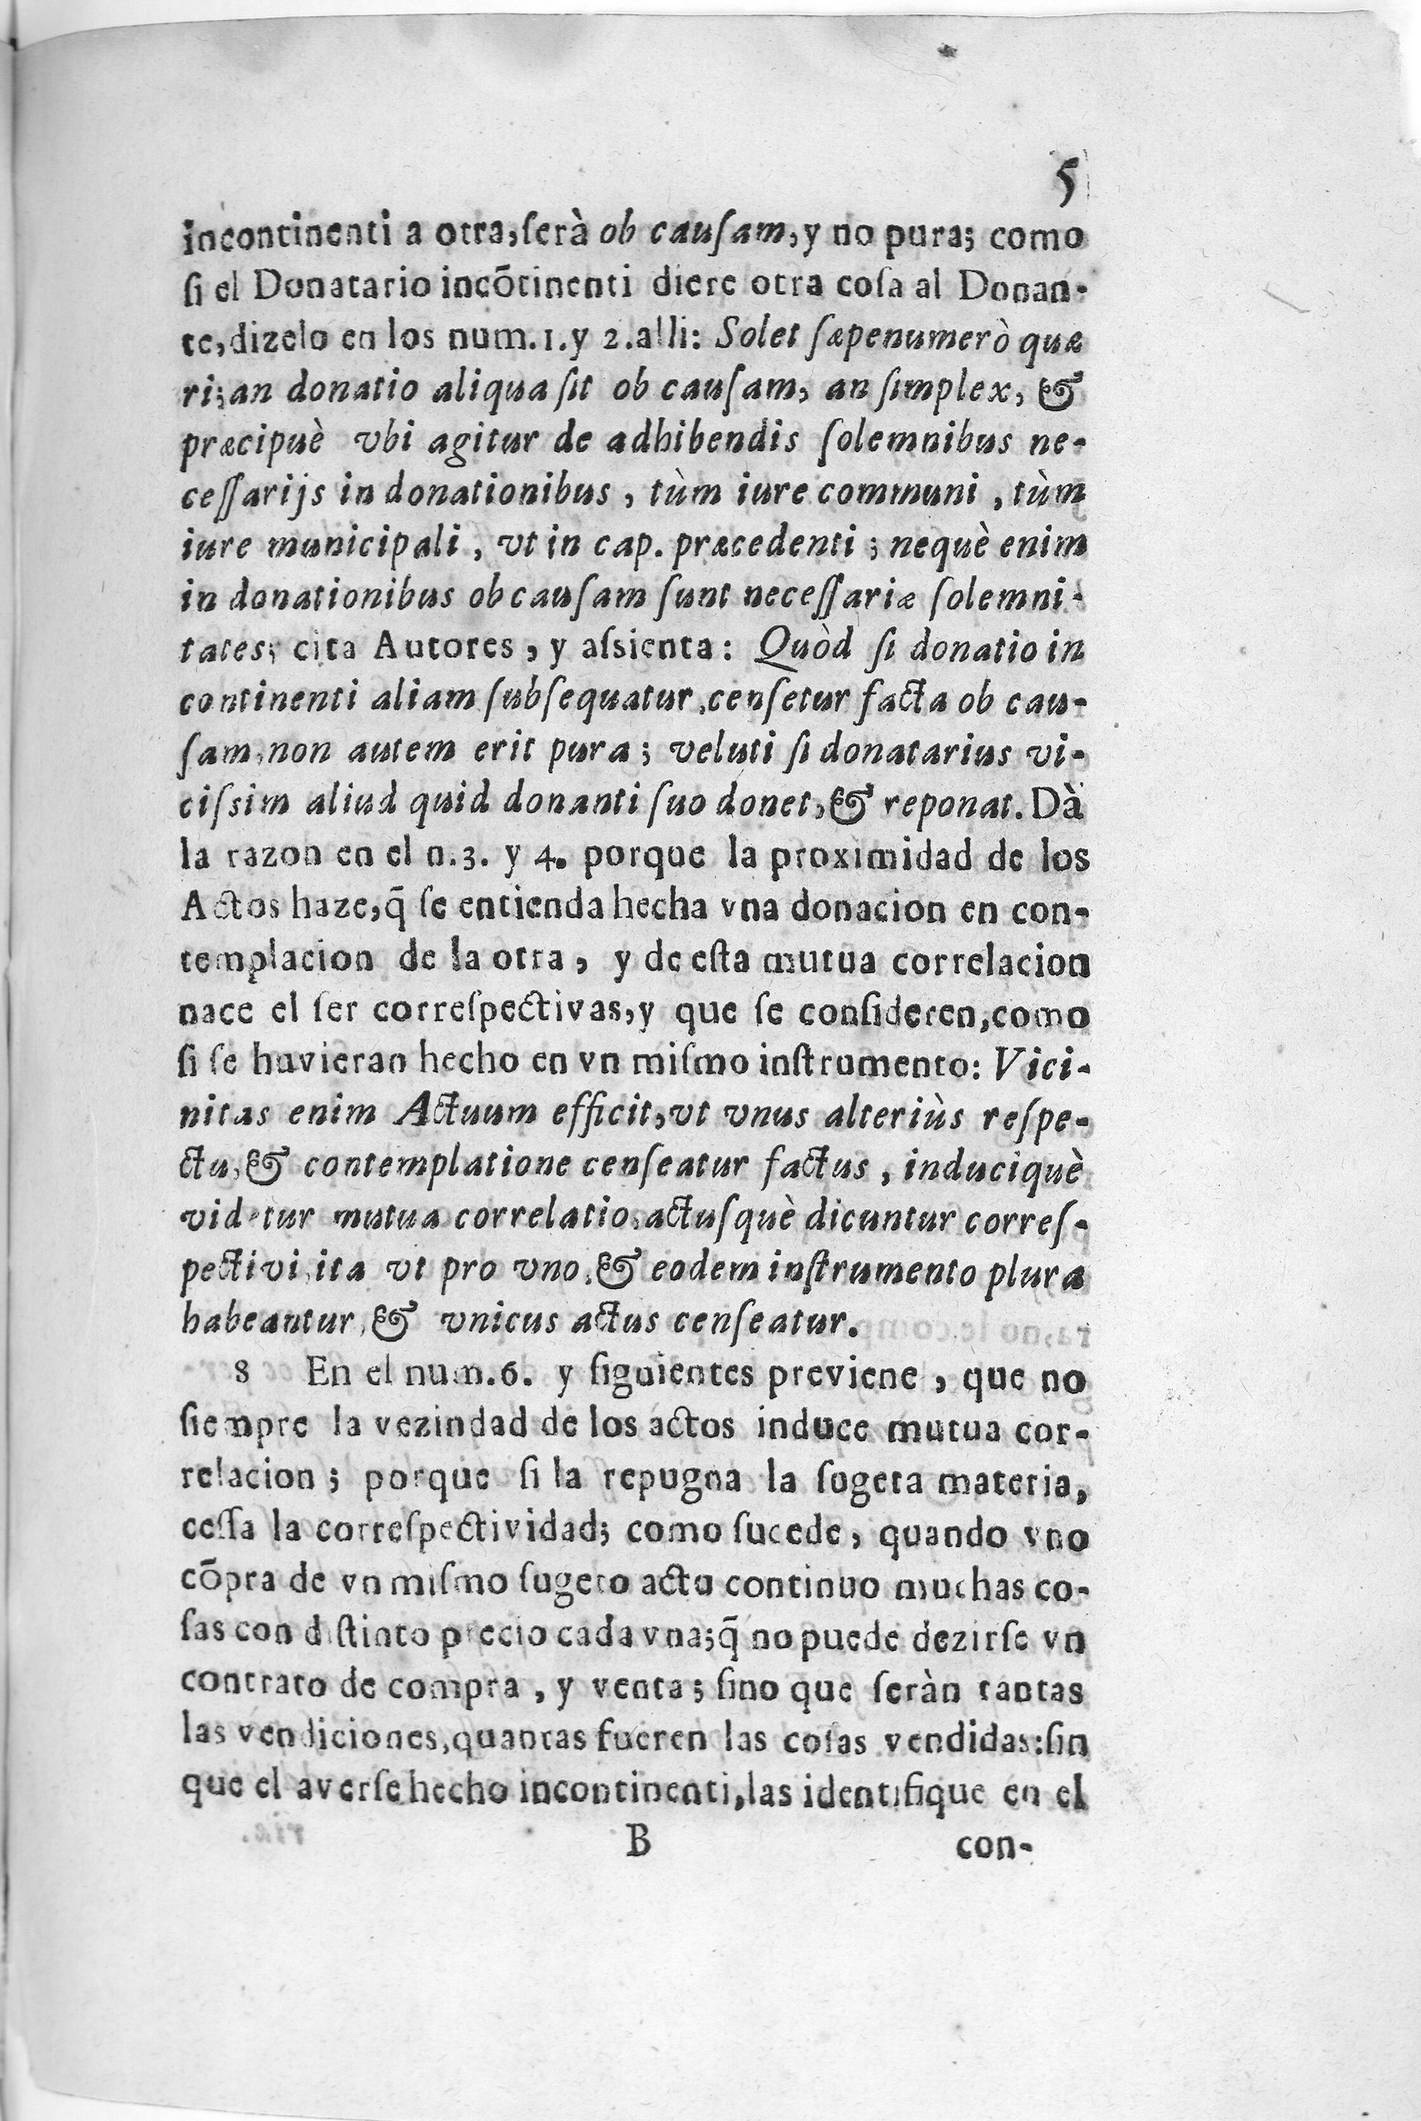 5
incontinenti a otra, ſerà ob cauſam, y no pura; como
ſi el Donatario incōtinenti diere otra coſa al Donan-
te, dizelo en los num. 1. y 2. alli: Solet ſæpenumerò quæ
ri; an donatio aliqua ſit ob cauſam, an ſimplex, &
præcipuè vbi agitur de adhibendis ſolemnibus ne-
ceſſarijs in donationibus, tùm iure communi, tùm
iure municipali, vt in cap. præcedenti; nequè enim
in donationibus ob cauſam ſunt neceſſariæ ſolemni-
tates; cita Autores, y aſsienta: Quòd ſi donatio in
continenti aliam ſubſequatur, cenſetur facta ob cau-
ſam, non autem erit pura; veluti ſi donatarius vi-
ciſsim aliud quid donanti ſuo donet, & reponat. Dà
la razon en el n. 3. y 4. porque la proximidad de los
Actos haze, q̃ ſe entienda hecha vna donacion en con-
templacion de la otra, y de eſta mutua correlacion
nace el ſer correſpectivas, y que ſe conſideren, como
ſi ſe huvieran hecho en vn miſmo inſtrumento: Vici-
nitas enim Actuum efficit, vt vnus alteriùs reſpe-
ctu, & contemplatione cenſeatur factus, induciquè
videtur mutua correlatio, actuſquè dicuntur correſ-
pectivi, ita vt pro vno, & eodem inſtrumento plura
habeantur, & vnicus actus cenſeatur.
8 En el num. 6. y ſiguientes previene, que no
ſiempre la vezindad de los actos induce mutua cor-
relacion; porque ſi la repugna la ſugeta materia,
ceſſa la correſpectividad; como ſucede, quando vno
cōpra de vn miſmo ſugeto actu continuo muchas co-
ſas con diſtinto precio cada vna; q̃ no puede dezirſe vn
contrato de compra, y venta; ſino que ſeràn tantas
las vendiciones, quantas fueren las coſas vendidas: ſin
que el averſe hecho incontinenti, las identifique en el
B con-